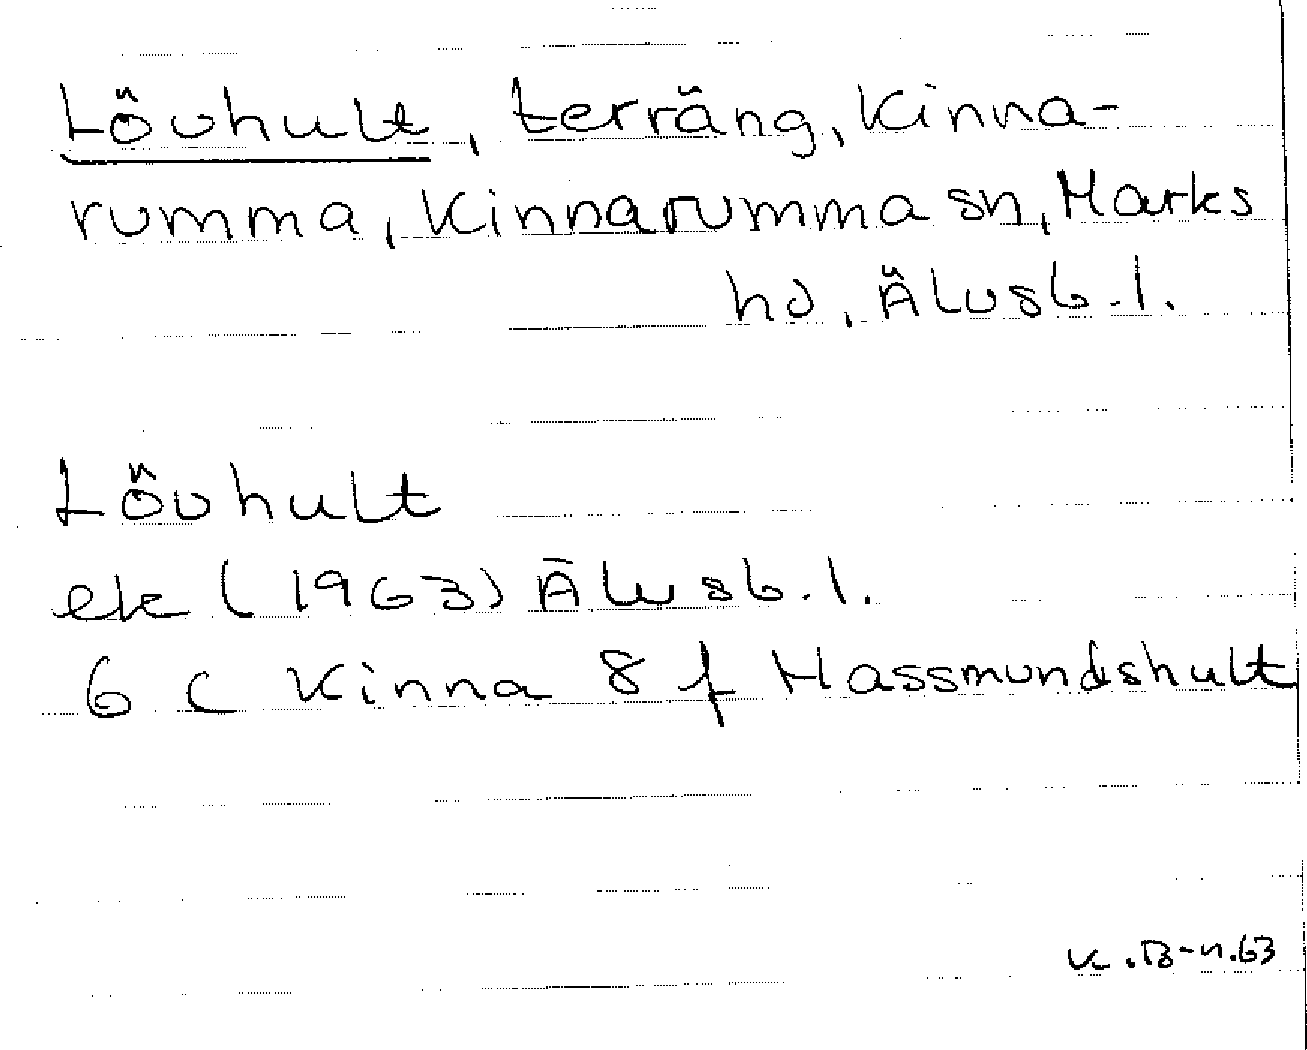 Lövhult, terräng, Kinna-
rumma, Kinnarumma sn, Marks
hd, Älvsb. l.
Lövhult
ek (1963) Älvsb. l.
6 C Kinna 8 f Hassmundshult
K.B-n.63